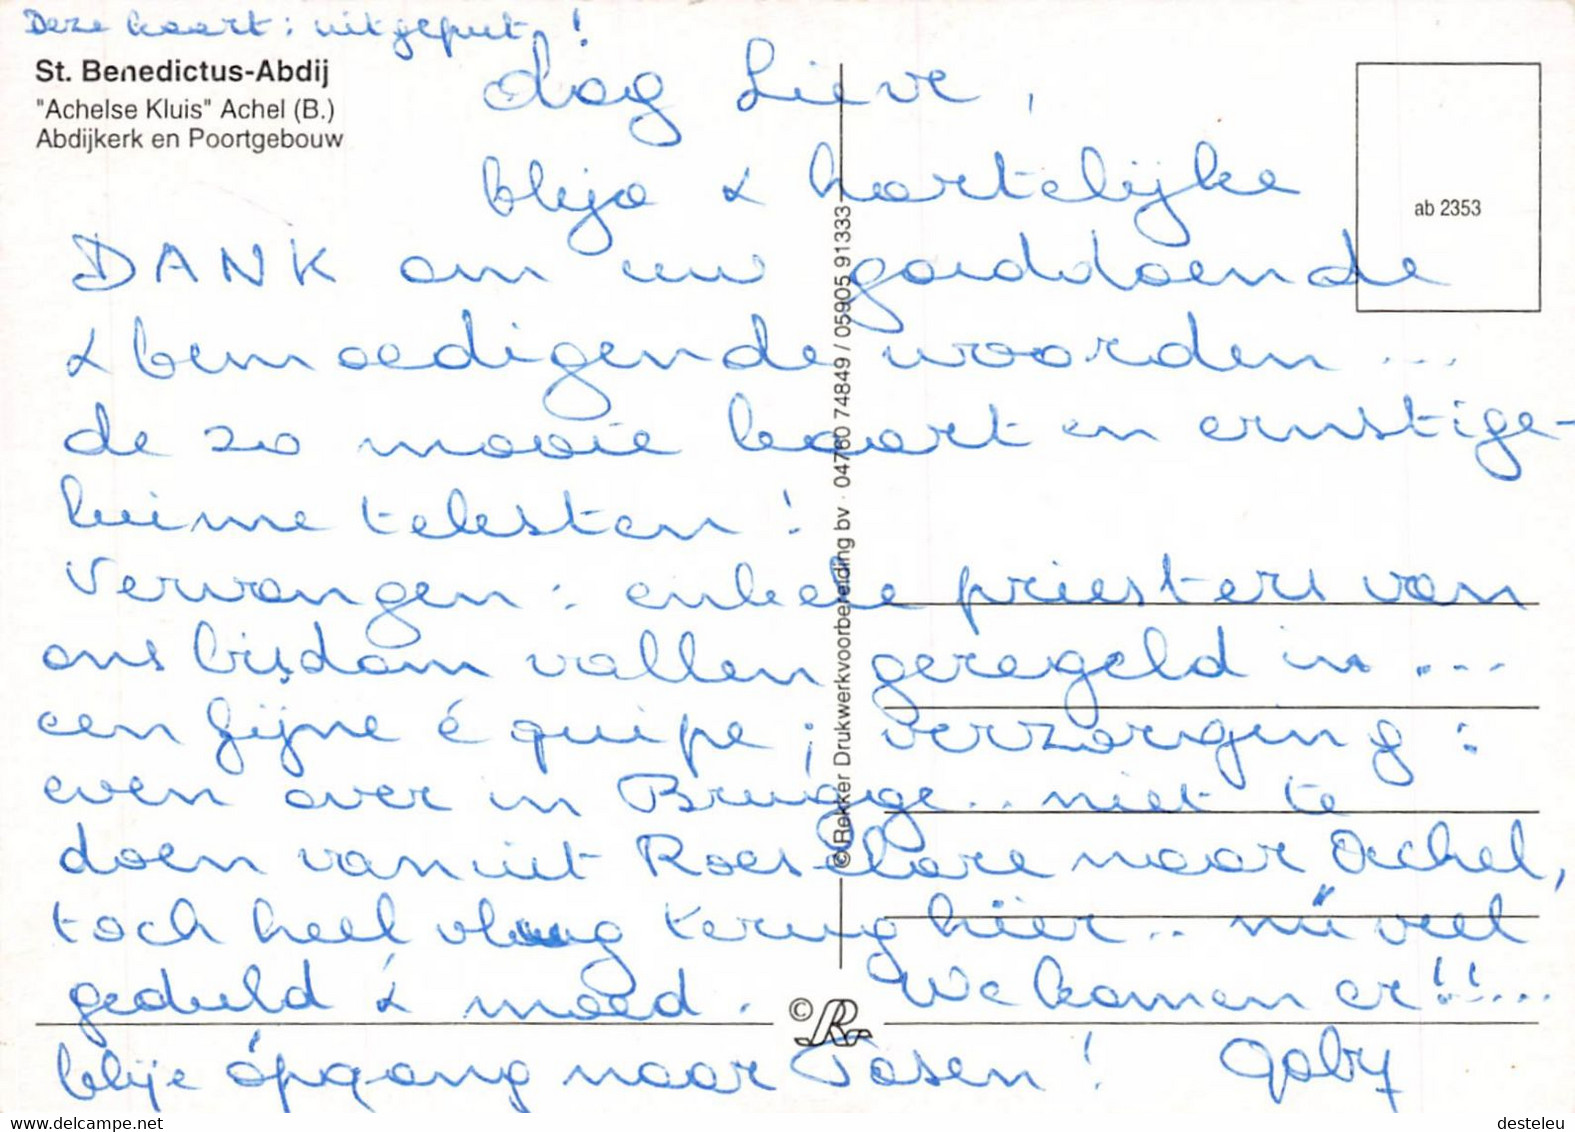 Deze kaart: uitgeput!
St. Benedictus-Abdij
"Achelse Kluis" Achel (B.)
Abdijkerk en Poortgebouw
dag Lieve,
blije & hartelijke
DANK om uw goeddoende
& bemoedigende woorden...
de zo mooie kaart en ernstige-
kuime teksten!
Vervangen: enkele priesters van
ons bisdom vallen geregeld in...
een fijne équipe; verzorging:
even over in Brugge.. niet te
doen vanuit Roeselare naar Achel,
toch heel vlug terug hier.. nú veel
geduld & moed. We komen er!!....
blije ópgang naar Pasen! Gaby
ab 2353
© Rekker Drukwerkvoorbereiding bv · 04760 74849 / 05905 91333
© RR
desteleu